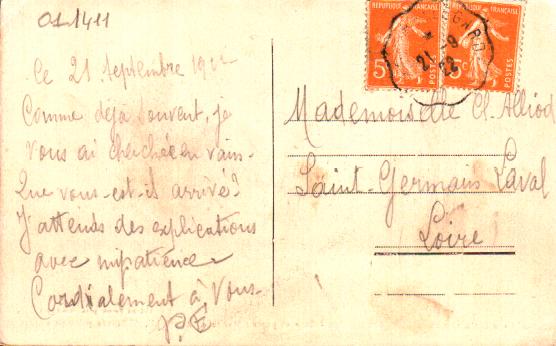 01 1411
Ce 21 septembre 1922
Comme déjà souvent, je
vous ai cherchée en vain.
Que vous-est-il arrivé?
J'attends des explications
avec impatience
Cordialement à vous
P.E
REPUBLIQUE FRANÇAISE
5c
POSTES
REPUBLIQUE FRANÇAISE
5c
POSTES
21-9
22
Mademoiselle Cl. Alliod
Saint-Germain Laval
Loire